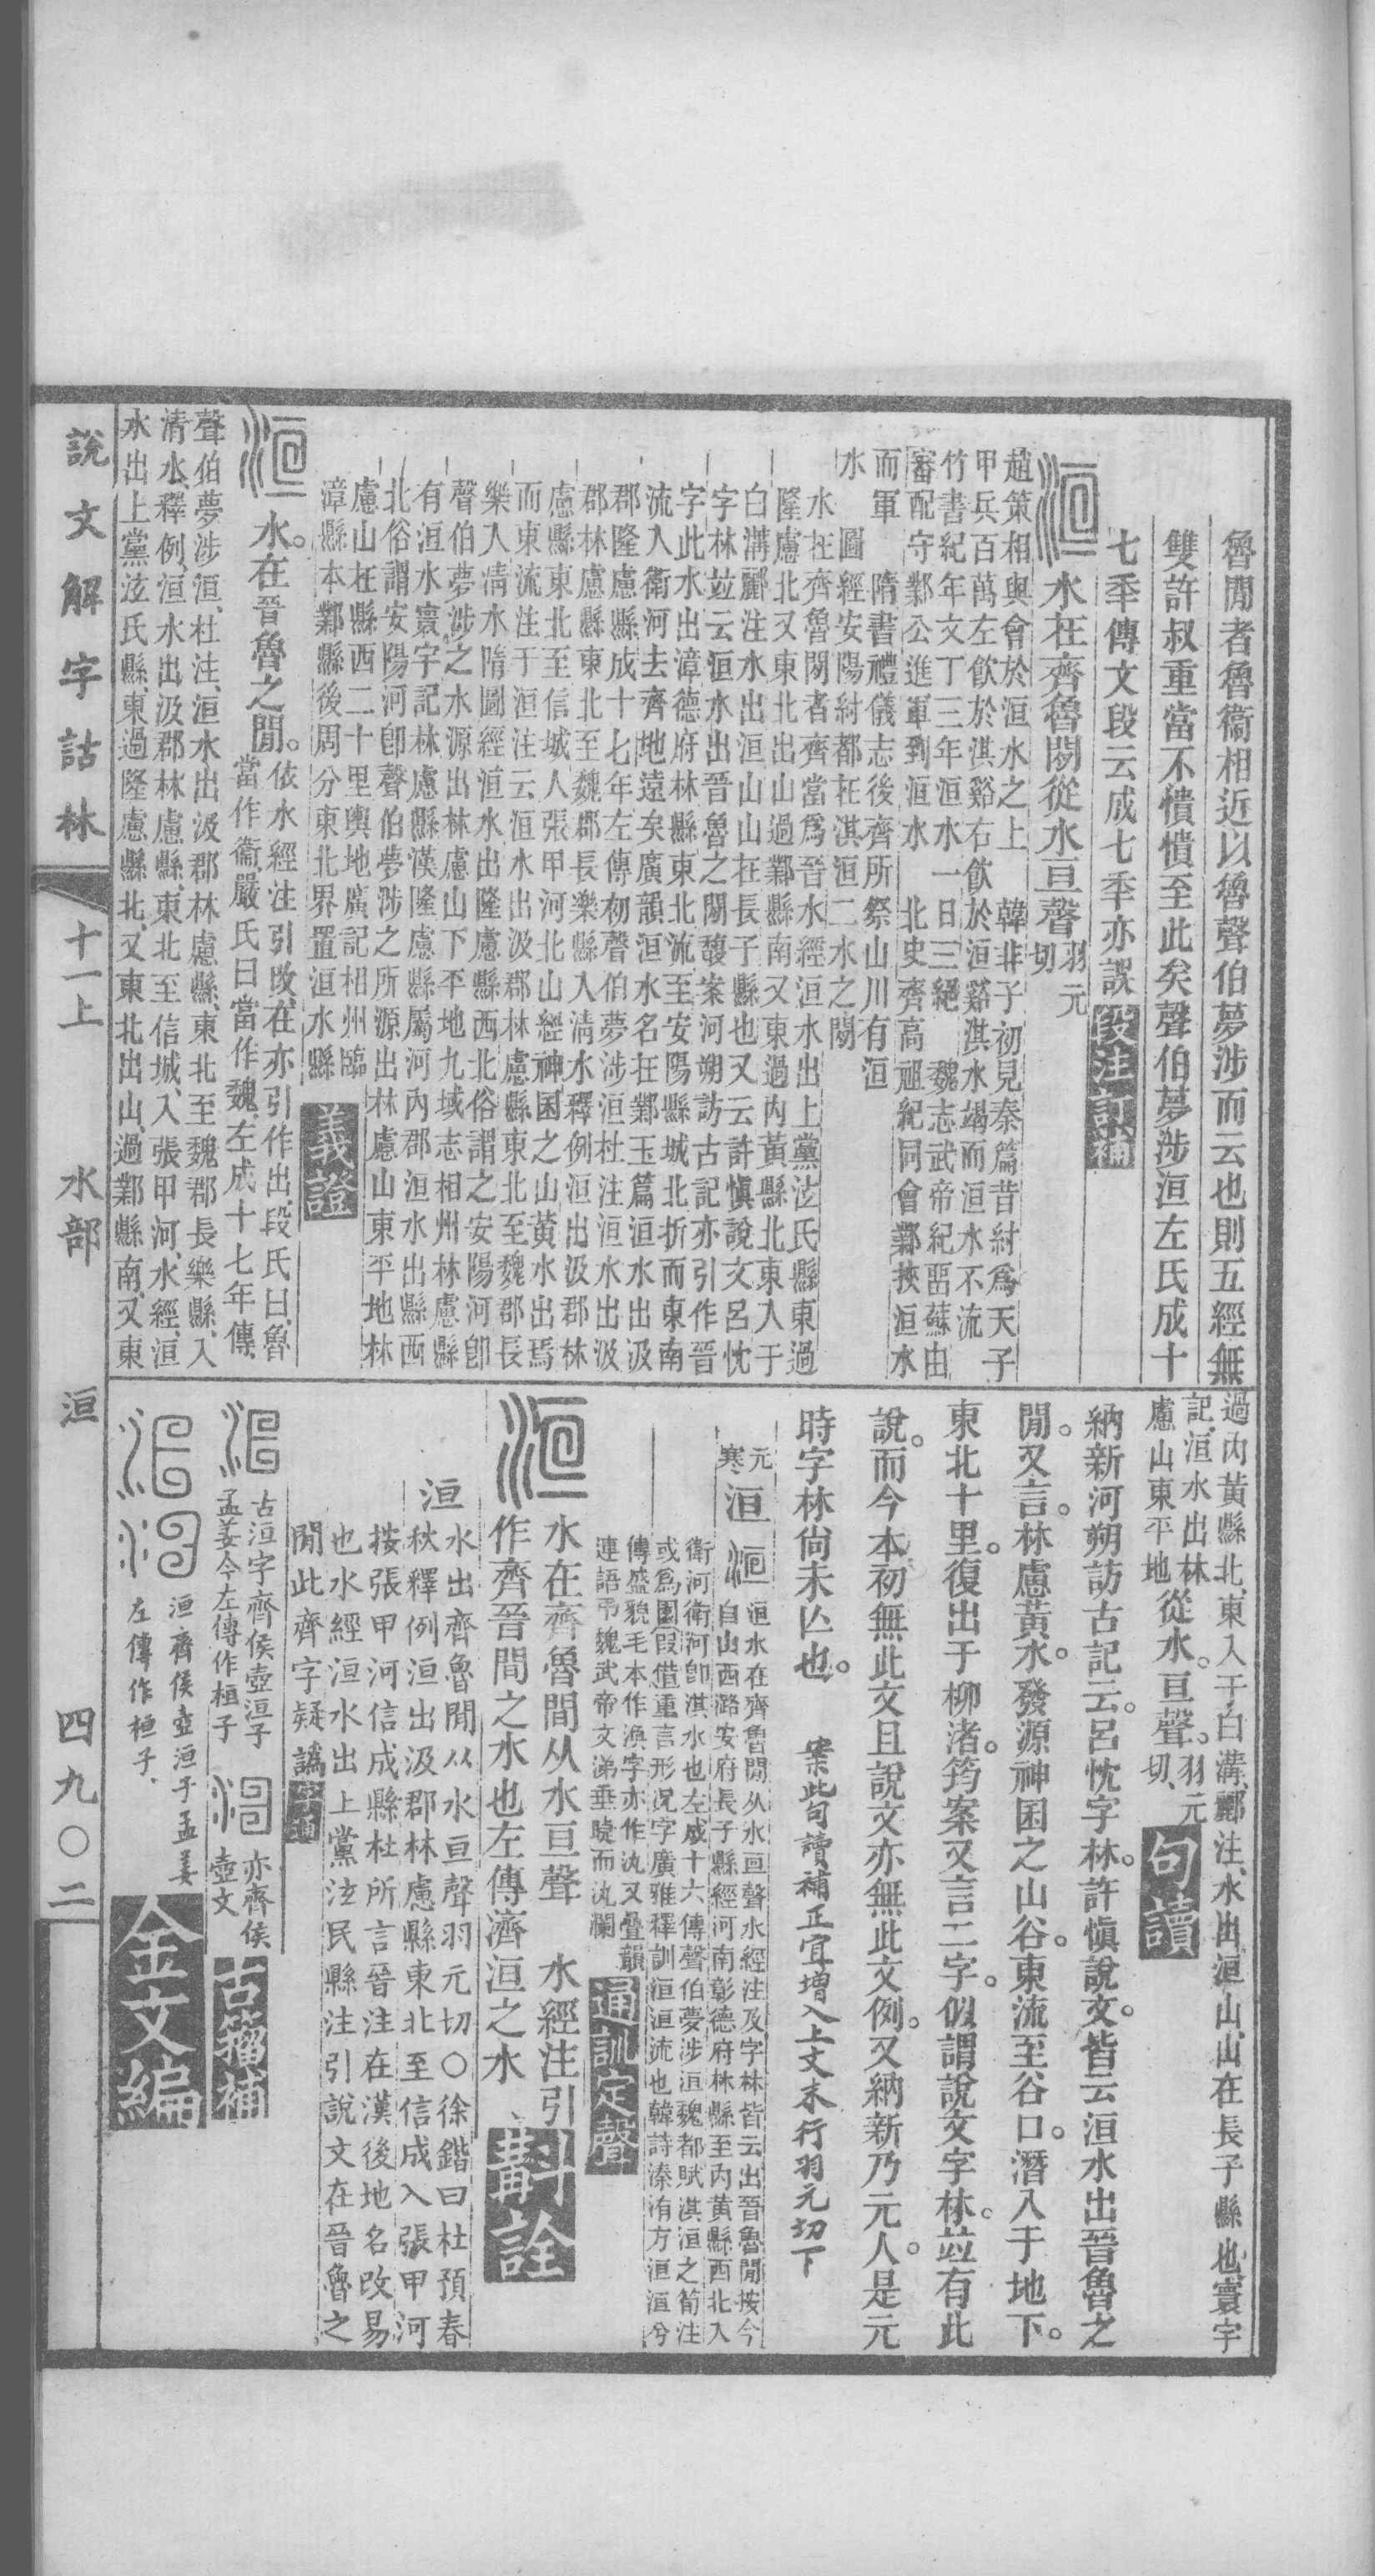 魯閒者魯衞相近以魯聲伯夢涉而云也則五經無
雙許叔重當不憒憒至此矣聲伯夢涉洹左氏成十
七秊傳文段云成七秊亦誤 段注訂補
洹 水在齊魯閒從水亘聲 羽元切
趙策相與會於洹水之上 韓非子初見秦篇昔紂爲天子
甲兵百萬左飮於淇谿右飮於洹谿淇水竭而洹水不流
竹書紀年文丁三年洹水一日三絕 魏志武帝紀畱蘇由
審配守鄴公進軍到洹水 北史齊高祖紀同會鄴挾洹水
而軍 隋書禮儀志後齊所祭山川有洹
水 圖經安陽紂都在淇洹二水之閒
水在齊魯閒者齊當爲晉水經洹水出上黨泫氏縣東過
隆慮北又東北出山過鄴縣南又東過內黃縣北東入于
白溝酈注水出洹山山在長子縣也又云許愼說文呂忱
字林竝云洹水出晉魯之閒馥案河朔訪古記亦引作晉
字此水出漳德府林縣東北流至安陽縣城北折而東南
流入衞河去齊地遠矣廣韻洹水名在鄴玉篇洹水出汲
郡隆慮縣成十七年左傳初聲伯夢涉洹杜注洹水出汲
郡林慮縣東北至魏郡長樂縣入淸水釋例洹出汲郡林
慮縣東北至信城入張甲河北山經神囷之山黃水出焉
而東流注于洹注云洹水出汲郡林慮縣東北至魏郡長
樂入淸水隋圖經洹水出隆慮縣西北俗謂之安陽河卽
聲伯夢涉之水源出林慮山下平地九域志相州林慮縣
有洹水寰宇記林慮縣漢隆慮縣屬河內郡洹水出縣西
北俗謂安陽河卽聲伯夢涉之所源出林慮山東平地林
慮山在縣西二十里輿地廣記相州臨
漳縣本鄴縣後周分東北界置洹水縣 義證
洹 水。在晉魯之閒。依水經注引改在亦引作出段氏曰、魯
當作衞嚴氏曰當作魏、左成十七年傳、
聲伯夢涉洹、杜注、洹水出汲郡林慮縣、東北至魏郡長樂縣、入
淸水、釋例、洹水出汲郡林慮縣、東北至信城、入張甲河、水經、洹
水出上黨泫氏縣、東過隆慮縣北、又東北出山、過鄴縣南、又東
過內黃縣北、東入于白溝、酈注、水出洹山、山在長子縣也、寰宇
記、洹水出林
慮山東平地 從水。亘聲。羽元切、 句讀
納新河朔訪古記云。呂忱字林。許愼說文。皆云洹水出晉魯之
閒。又言。林慮黃水。發源神囷之山谷。東流至谷口。潛入于地下。
東北十里。復出于柳渚。筠案又言二字。似謂說文字林。竝有此
說。而今本初無此文且說文亦無此文例。又納新乃元人。是元
時字林尙未亾也。 案此句讀補正宜增入上文末行羽元切下
元寒 洹 洹 洹水在齊魯閒从水亘聲水經注及字林皆云出晉魯閒按今
自山西潞安府長子縣經河南彰德府林縣至內黃縣西北入
衛河衛河卽淇水也左成十六傳聲伯夢涉洹魏都賦淇洹之筍注
或爲園〔叚借〕重言形況字廣雅釋訓洹洹流也韓詩溱洧方洹洹兮
傳盛貌毛本作渙字亦作汍又疊韻
連語弔魏武帝文涕垂睫而汍瀾 通訓定聲
洹 水在齊魯間从水亘聲 水經注引
作齊晉間之水也左傳濟洹之水 斠詮
洹 水出齊魯閒从水亘聲羽元切〇徐鍇曰杜預春
秋釋例洹出汲郡林慮縣東北至信成入張甲河
按張甲河信成縣杜所言晉注在漢後地名改易
也水經洹水出上黨泫民縣注引說文在晉魯之
閒此齊字疑譌
古洹字齊侯壺洹子
孟姜今左傳作桓子 亦齊侯
壺文 古籀補
洹齊侯壺洹子孟姜
左傳作桓子、 金文編
說文解字詁林 十一上 水部 洹 四九〇二